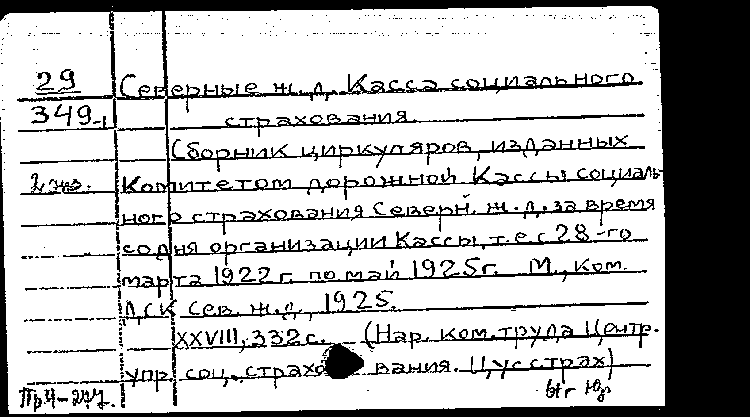 29 Северные ж. д. Касса социального
349-1 страхования.
Сборник циркуляров, изданных
2 экз. Комитетом дорожной Кассы социаль-
ного страхования Северн. ж. д. за время
со дня организации Кассы, т. е. с 28-го
марта 1922 г. по май 1925 г. М., Ком.
ДСК Сев. ж. д., 1925.
XXVIII, 332 с. (Нар. ком. труда Центр.
упр. соц. страхования. Цусстрах)